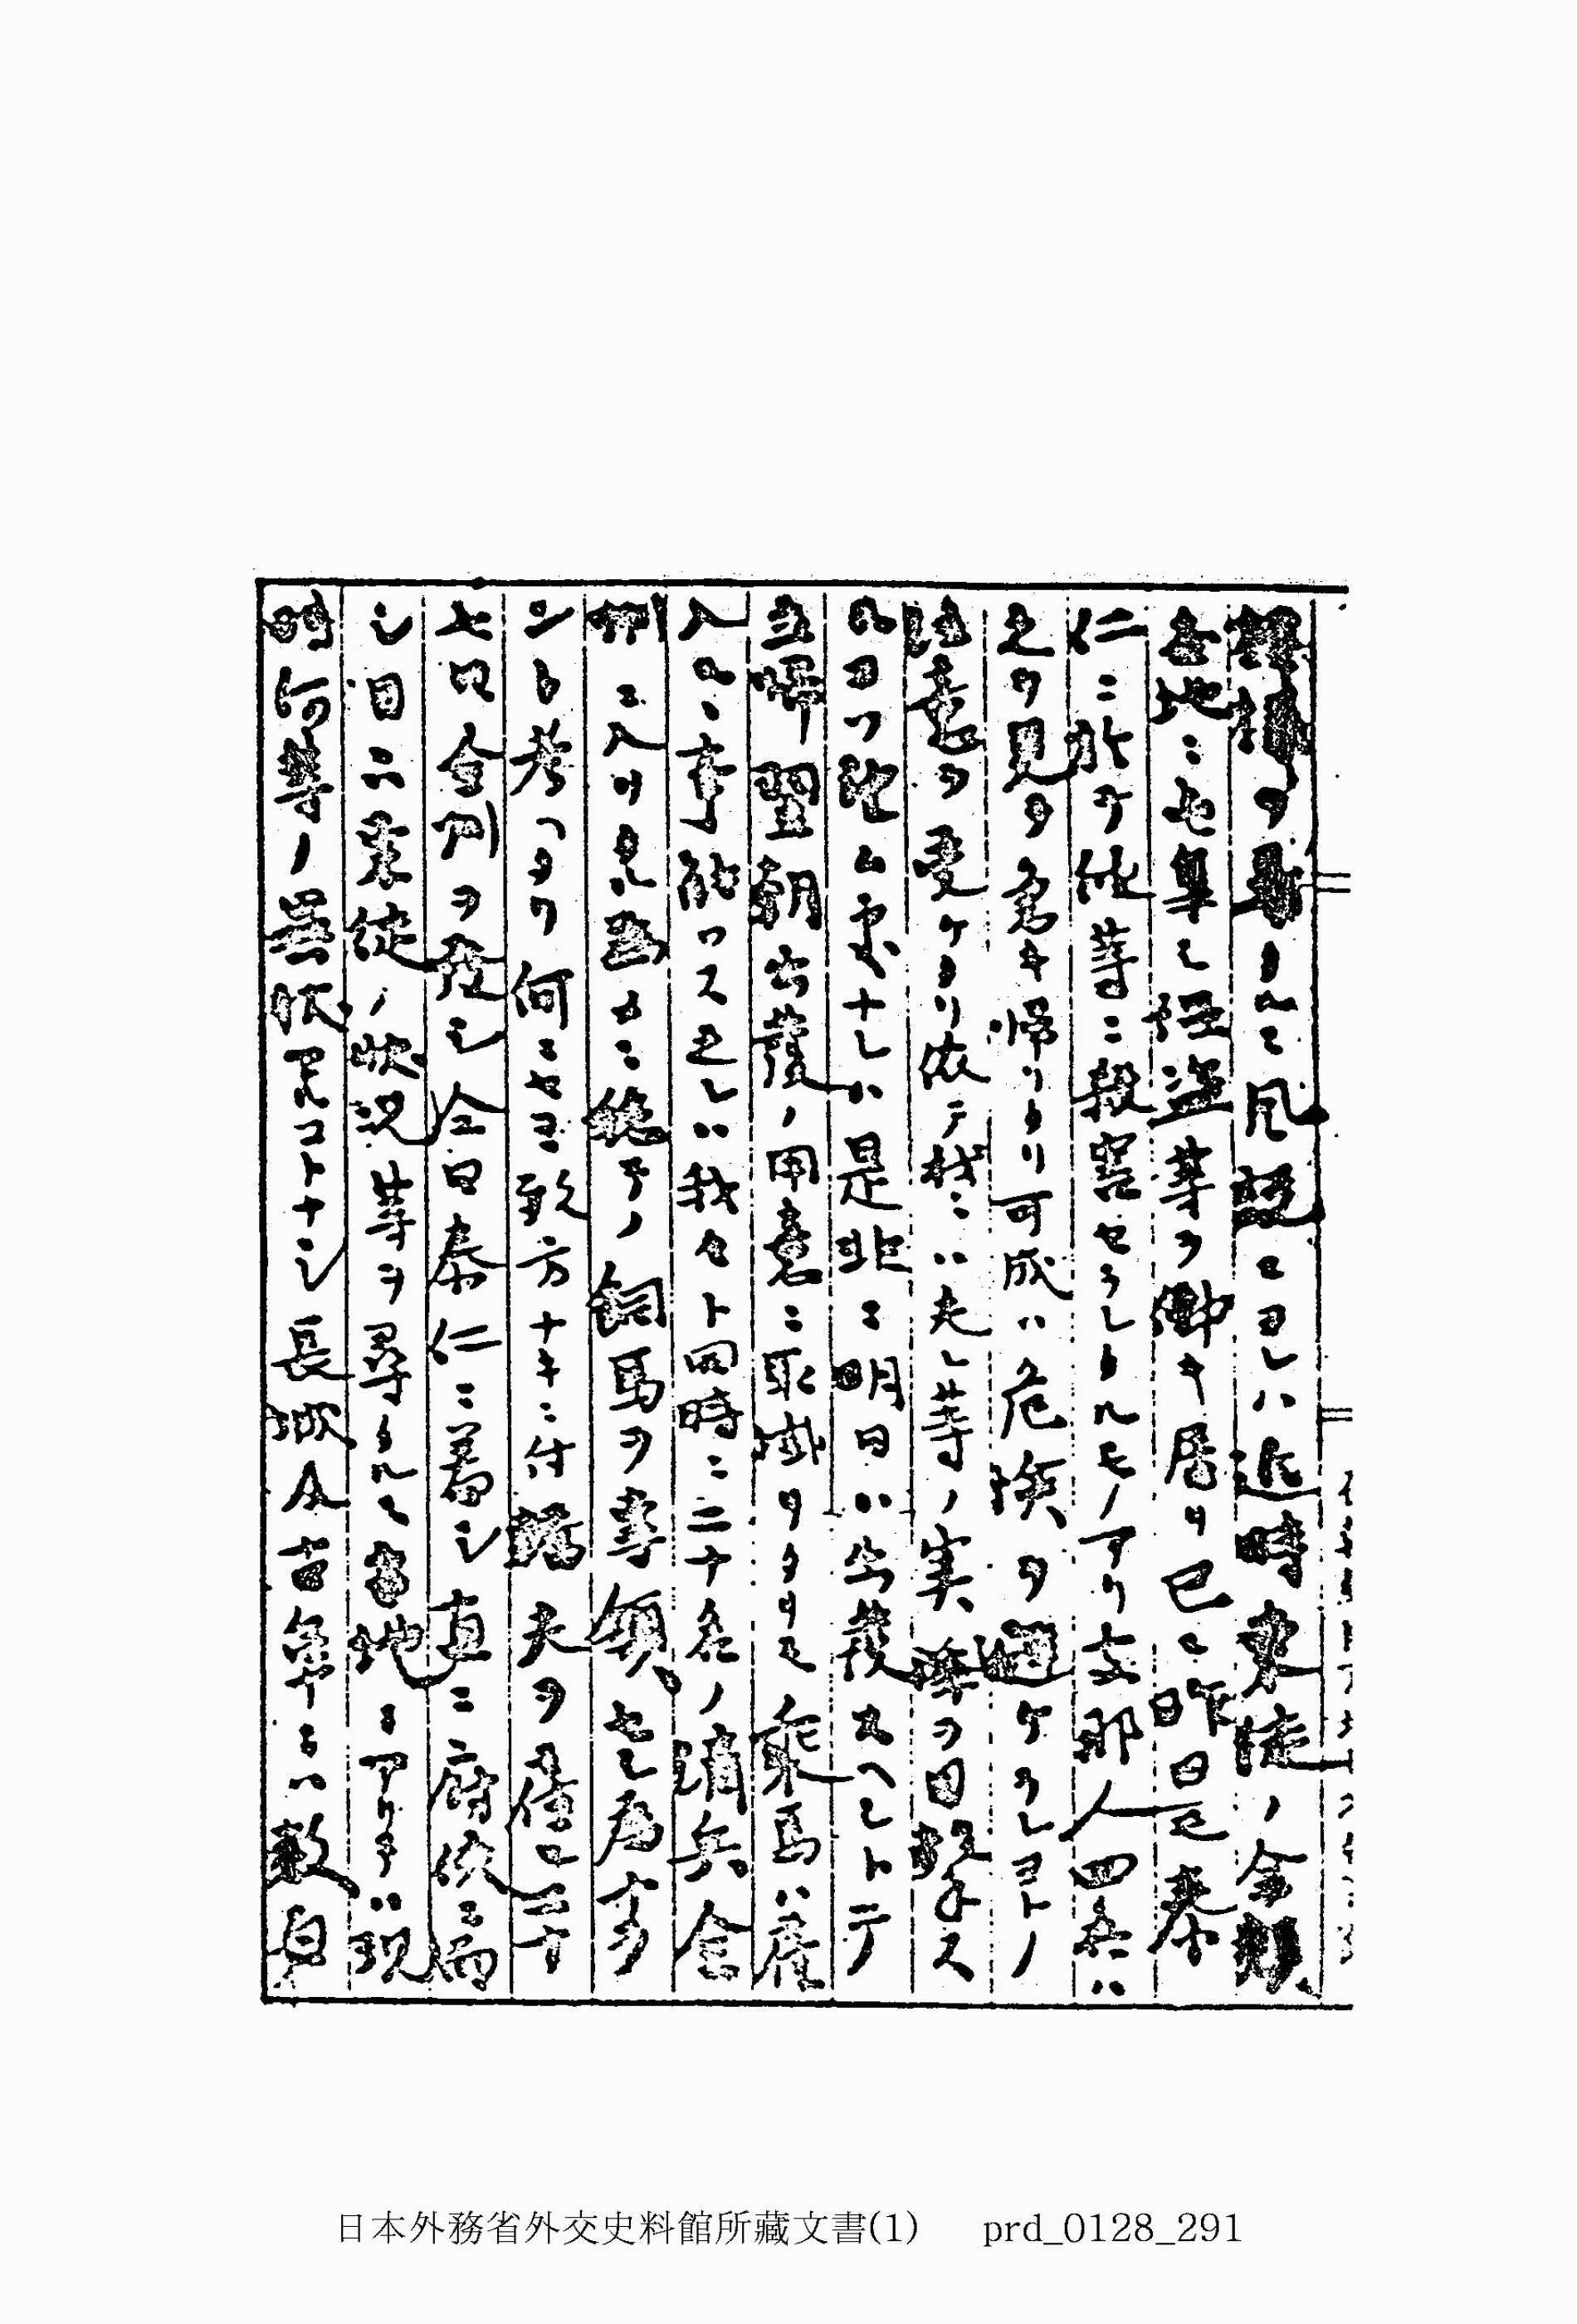 模様ヲ尋タルニ風説ニヨレハ近時東徒ノ余類
各地ニ屯集シ強盗等ヲ働キ居リ已ニ昨日モ泰
仁ニ於テ他等ニ殺害セラレタルモノアリ支那人四名ハ
之ヲ見タ急キ帰リタリ可成ハ危険ヲ避ケラレヨトノ
注意ヲ受ケタリ依テ我ニハ夫レ等ノ実際ヲ目撃ス
ルヨリ望ム処ナレハ是非ニ明日ハ出発スヘシトテ
立帰翌朝出發ノ用意ニ取掛リタリモ乗馬ハ産
入ル、事能ワス之レハ我々ト同時ニ二十名ノ哨兵金
州ニ入リタル為カニ総テノ飼馬ヲ専領セシ為ナラ
ント考ヘタリ何ニセヨ致方ナキニ付馬夫ヲ傭ヒ二十
七日全州ヲ發シ全日泰仁ニ着シ直ニ府使ニ面
シ目下東徒ノ状況等ヲ尋タルニ當地ニアリテハ現
時何等ノ異状アルコトナシ長城古阜ニハ数百
日本外務省外交史料館所藏文書(1) prd_0128_291